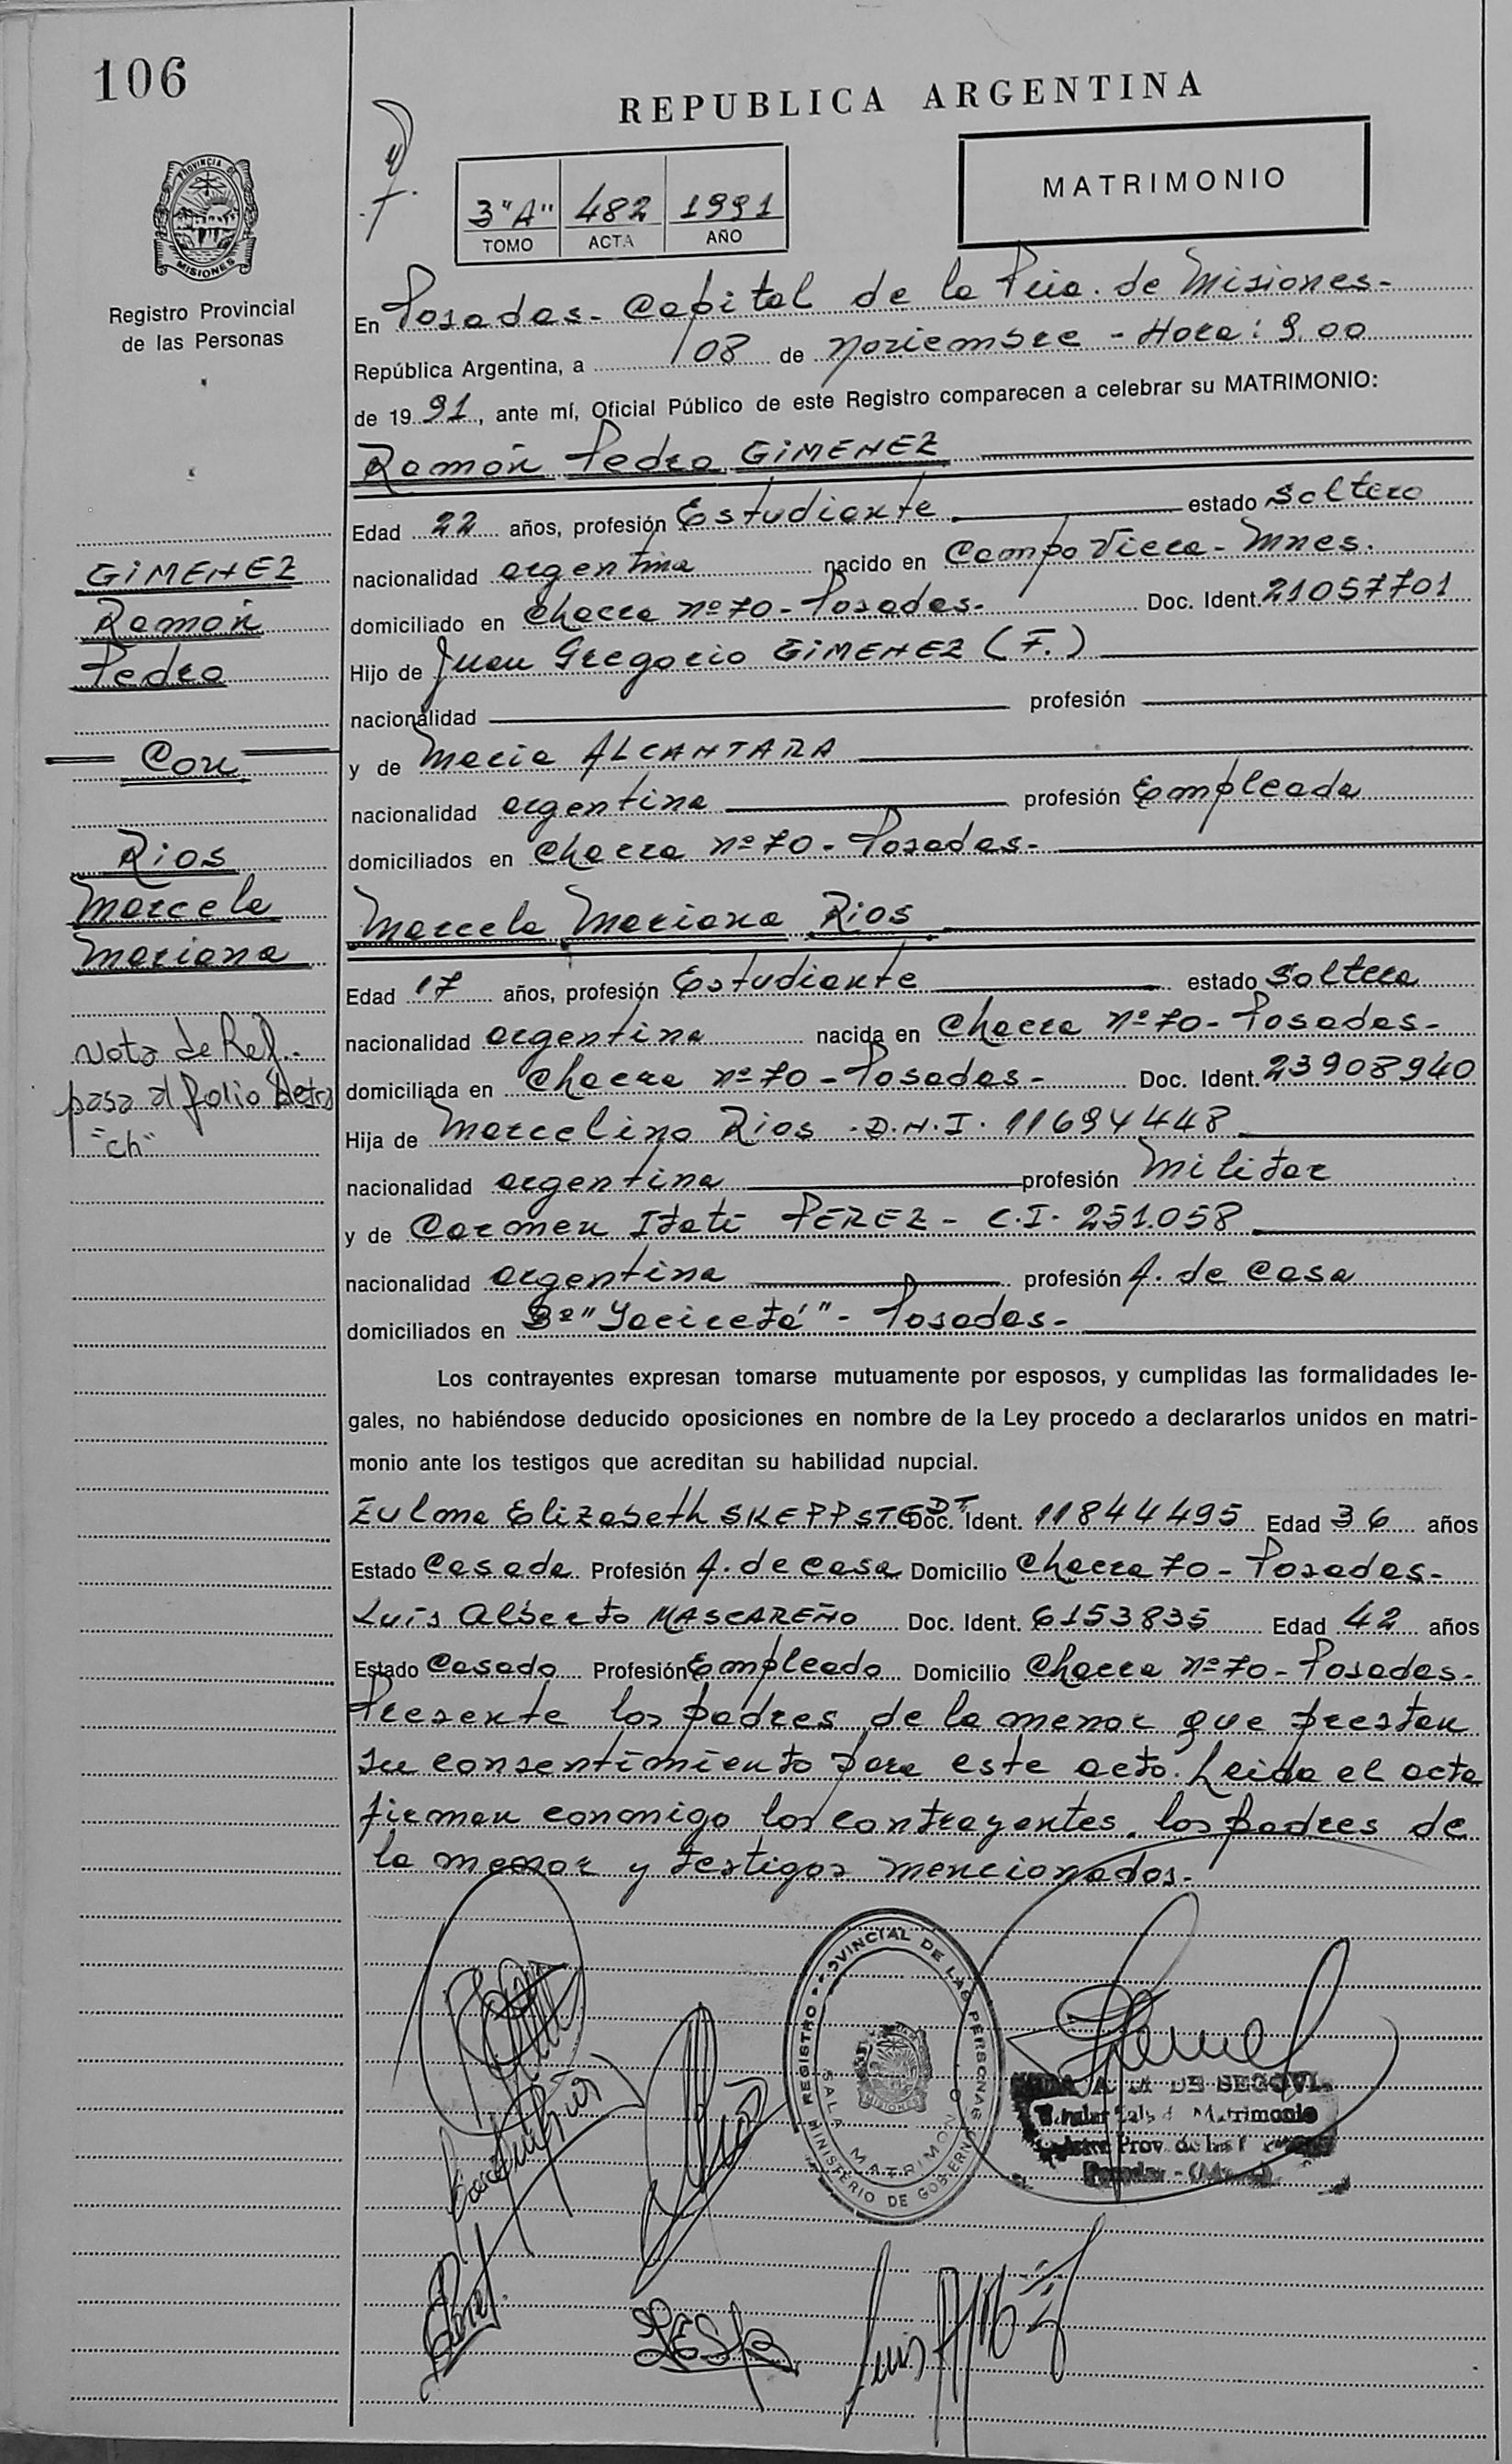 106
REPUBLICA ARGENTINA
PROVINCIA DE
MISIONES
Registro Provincial
de las Personas
3"A" 482 1991
TOMO ACTA AÑO
MATRIMONIO
En Posadas - Capital de la Pcia. de Misiones -
República Argentina, a 08 de noviembre - Hora: 9.00
de 1991, ante mí, Oficial Público de este Registro comparecen a celebrar su MATRIMONIO:
Ramón Pedro GIMENEZ
Edad 22 años, profesión Estudiante estado soltero
nacionalidad argentina nacido en Campo Viera - Mnes.
domiciliado en Chacra nº 70 - Posadas - Doc. Ident. 21057701
Hijo de Juan Gregorio GIMENEZ (F.)
nacionalidad profesión
y de Maria ALCANTARA
nacionalidad argentina profesión Empleada
domiciliados en Chacra nº 70 - Posadas -
Marcela Mariana Rios
Edad 17 años, profesión Estudiante estado soltera
nacionalidad argentina nacida en Chacra nº 70 - Posadas -
domiciliada en Chacra nº 70 - Posadas - Doc. Ident. 23908940
Hija de Marcelino Rios - D.N.I. 11694448
nacionalidad argentina profesión Militar
y de Carmen Itatí PEREZ - C.I. 251.058
nacionalidad argentina profesión A. de Casa
domiciliados en Bº "Yaciretá" - Posadas -
GIMENEZ
Ramón
Pedro
Con
Rios
Marcela
Mariana
Nota de Ref.
pasa al folio letra
"ch"
Los contrayentes expresan tomarse mutuamente por esposos, y cumplidas las formalidades le-
gales, no habiéndose deducido oposiciones en nombre de la Ley procedo a declararlos unidos en matri-
monio ante los testigos que acreditan su habilidad nupcial.
Zulma Elizabeth SKEPPSTEDT Doc. Ident. 11844495 Edad 36 años
Estado Casada Profesión A. de casa Domicilio Chacra 70 - Posadas -
Luis Alberto MASCAREÑO Doc. Ident. 6153835 Edad 42 años
Estado Casado Profesión Empleado Domicilio Chacra nº 70 - Posadas -
Presente los padres de la menor que prestan
su consentimiento para este acto. Leida el acta
firman conmigo los contrayentes, los padres de
la menor y testigos mencionados -
REGISTRO PROVINCIAL DE LAS PERSONAS
MINISTERIO DE GOBIERNO
SALA MATRIMONIO
MISIONES
DE SEGOVIA
Titular Sala Matrimonio
Registro Prov. de las
Posadas - (Mnes)